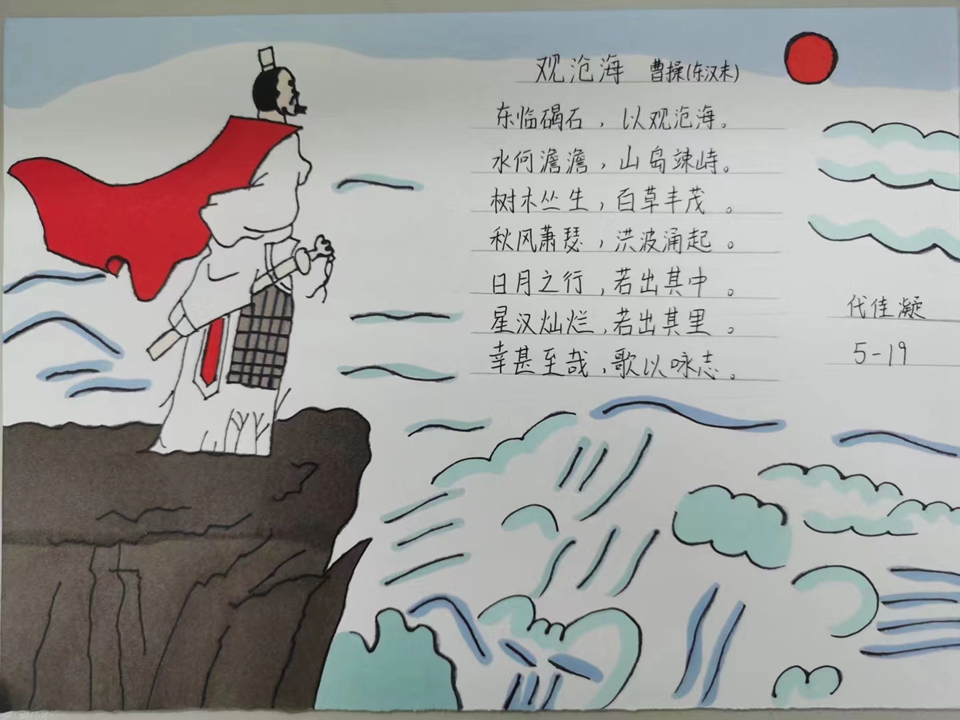 观沧海 曹操(东汉末)
东临碣石，以观沧海。
水何澹澹，山岛竦峙。
树木丛生，百草丰茂。
秋风萧瑟，洪波涌起。
日月之行，若出其中。
星汉灿烂，若出其里。
幸甚至哉，歌以咏志。
代佳凝
5-19